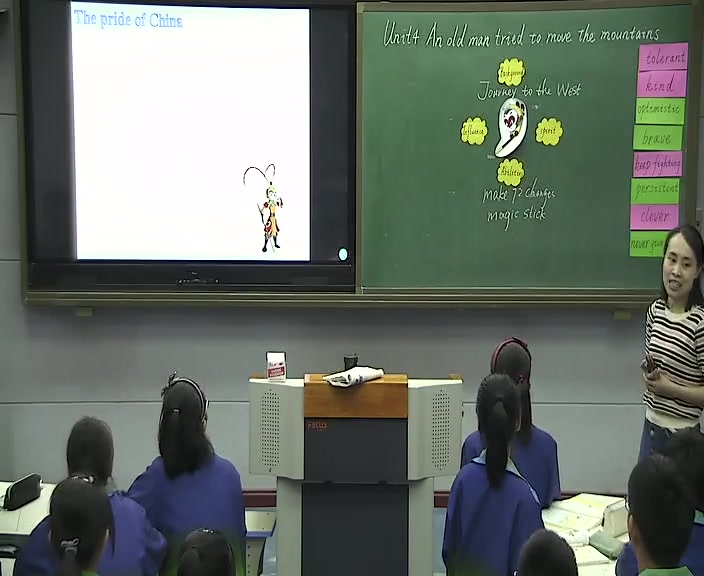 The pride of China
Unit4 An old man tried to move the mountains
Background
Journey to the West
Influence
spirit
Abilities
make 72 changes
magic stick
tolerant
kind
optimistic
brave
keep fighting
persistent
clever
never give
FOCUS